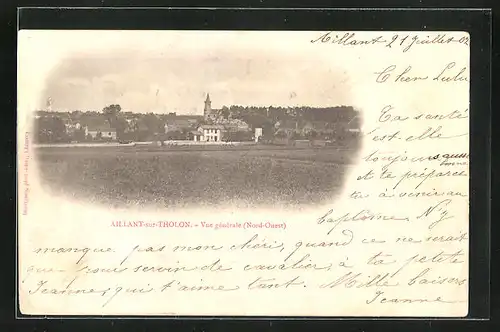 Aillant 21 Juillet 02
Cher Lulu
Ta santé
est-elle
toujours aussi
bonne
et te prépare
tu à venir au
baptême N'y
manque pas mon chéri, quand ce ne serait
que pour servir de cavalier, à ta petite
Jeanne, qui t'aime tant. Mille baisers
Jeanne
AILLANT-sur-THOLON. - Vue générale (Nord-Ouest)